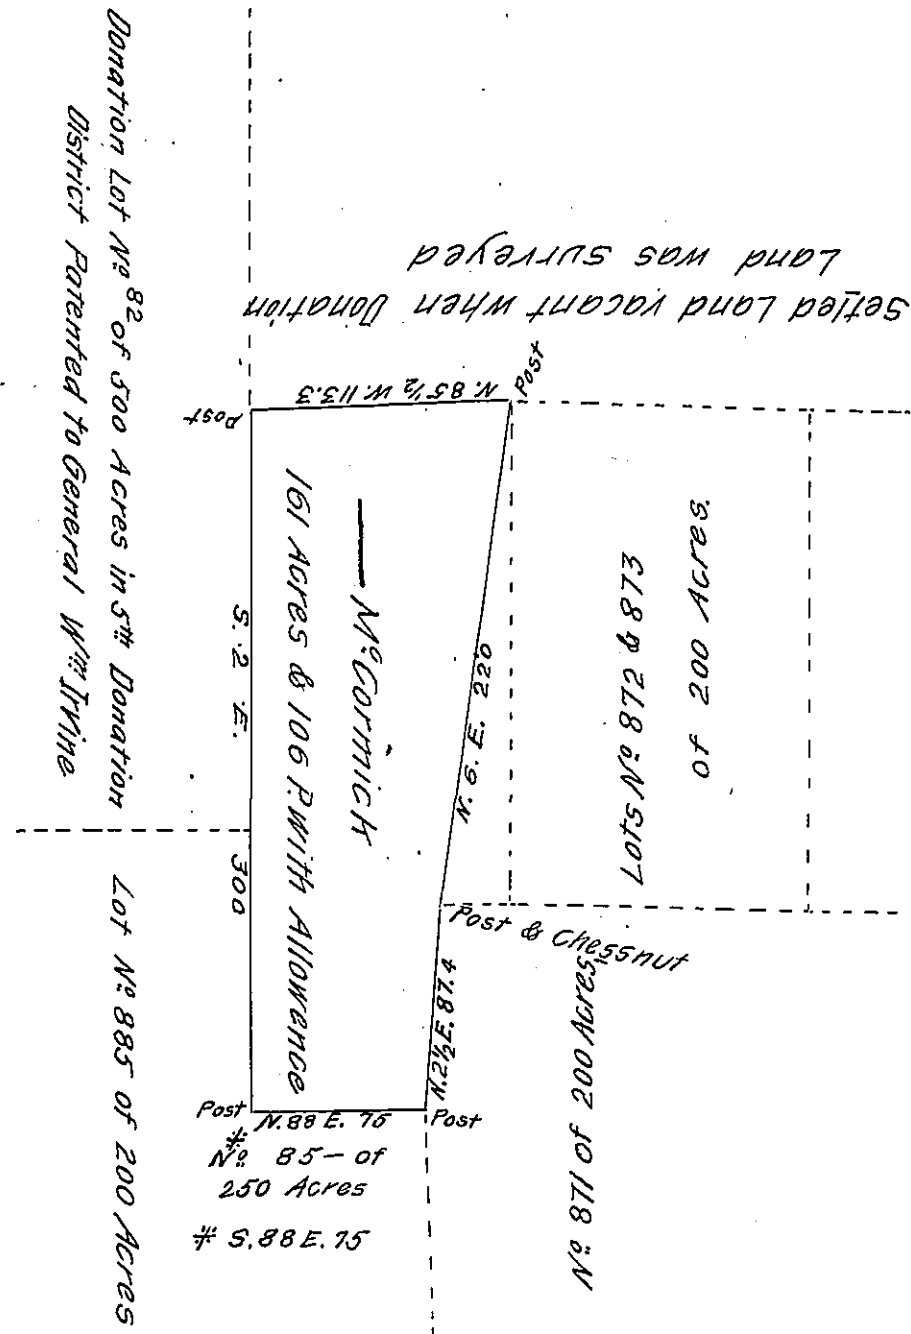 Donation Lot Nº 82 of 500 Acres in 5th Donation
District Patented to General Wm Irvine
Lot Nº 885 of 200 Acres
Setled Land vacant when Donation
Land was surveyed
Post
N. 85½ W. 113.3
Post
McCormick
161 Acres & 106 P. With Allowence
S. 2 E. 300
N. 6. E. 220
Lots Nº 872 & 873
of 200 Acres.
Post & Chessnut
N. 2½ E. 87.4
Nº 871 of 200 Acres
Post
# N. 88 E. 75
Post
Nº 85 — of
250 Acres
# S. 88 E. 75